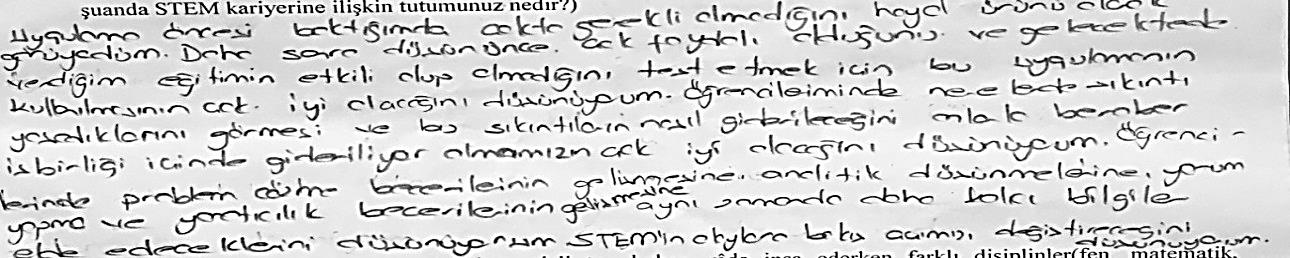 şuanda STEM kariyerine ilişkin tutumunuz nedir?)
Uygulama öncesi baktığımda çokta gerekli olmadığını hayal ürünü olarak
görüyordum. Daha sonra düşününce. çok faydalı olduğunu. ve gelecektede
verdiğim eğitimin etkili olup olmadığını test etmek icin bu uygulamanın
kullanılmasının çok. iyi olacağını düşünüyorum. Öğrencileriminde nerelerde sıkıntı
yaşadıklarını görmesi ve bu sıkıntıların nasıl giderileceğini onlarla beraber
isbirliği icinde gideriliyor olmamızın çok iyi olacağını düşünüyorum. Öğrenci-
lerinde problem çözme becerilerinin gelişmesine. analitik düşünmelerine, yorum
yapma ve yaratıcılık becerilerinin gelişmesine aynı zamanda daha kalıcı bilgiler
elde edeceklerini düşünüyorum STEM'in olaylara bakış açımızı, değistireceğini
düşünüyorum.
farklı disiplinler(fen, matematik,